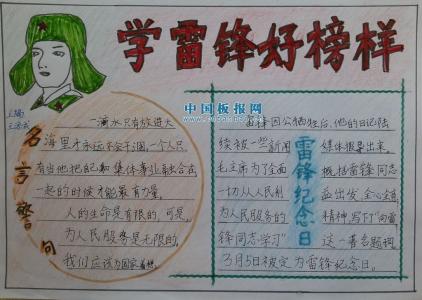 学雷锋好榜样
中国板报网
主编
名言警句
一滴水只有放进大
海里才永远不会干涸,一个人只
有当他把自己和集体事业融合在
一起的时候才能最有力量。
人的生命是有限的,可是,
为人民服务是无限的,
我们应该为国家着想。
雷锋纪念日
雷锋因公牺牲后,他的日记陆
续被一些新闻媒体报暴出来。
毛主席为了全面概括雷锋同志
一切从人民利益出发,全心全意
为人民服务的精神,写下了“向雷
锋同志学习”这一著名题词,
3月5日被定为雷锋纪念日。